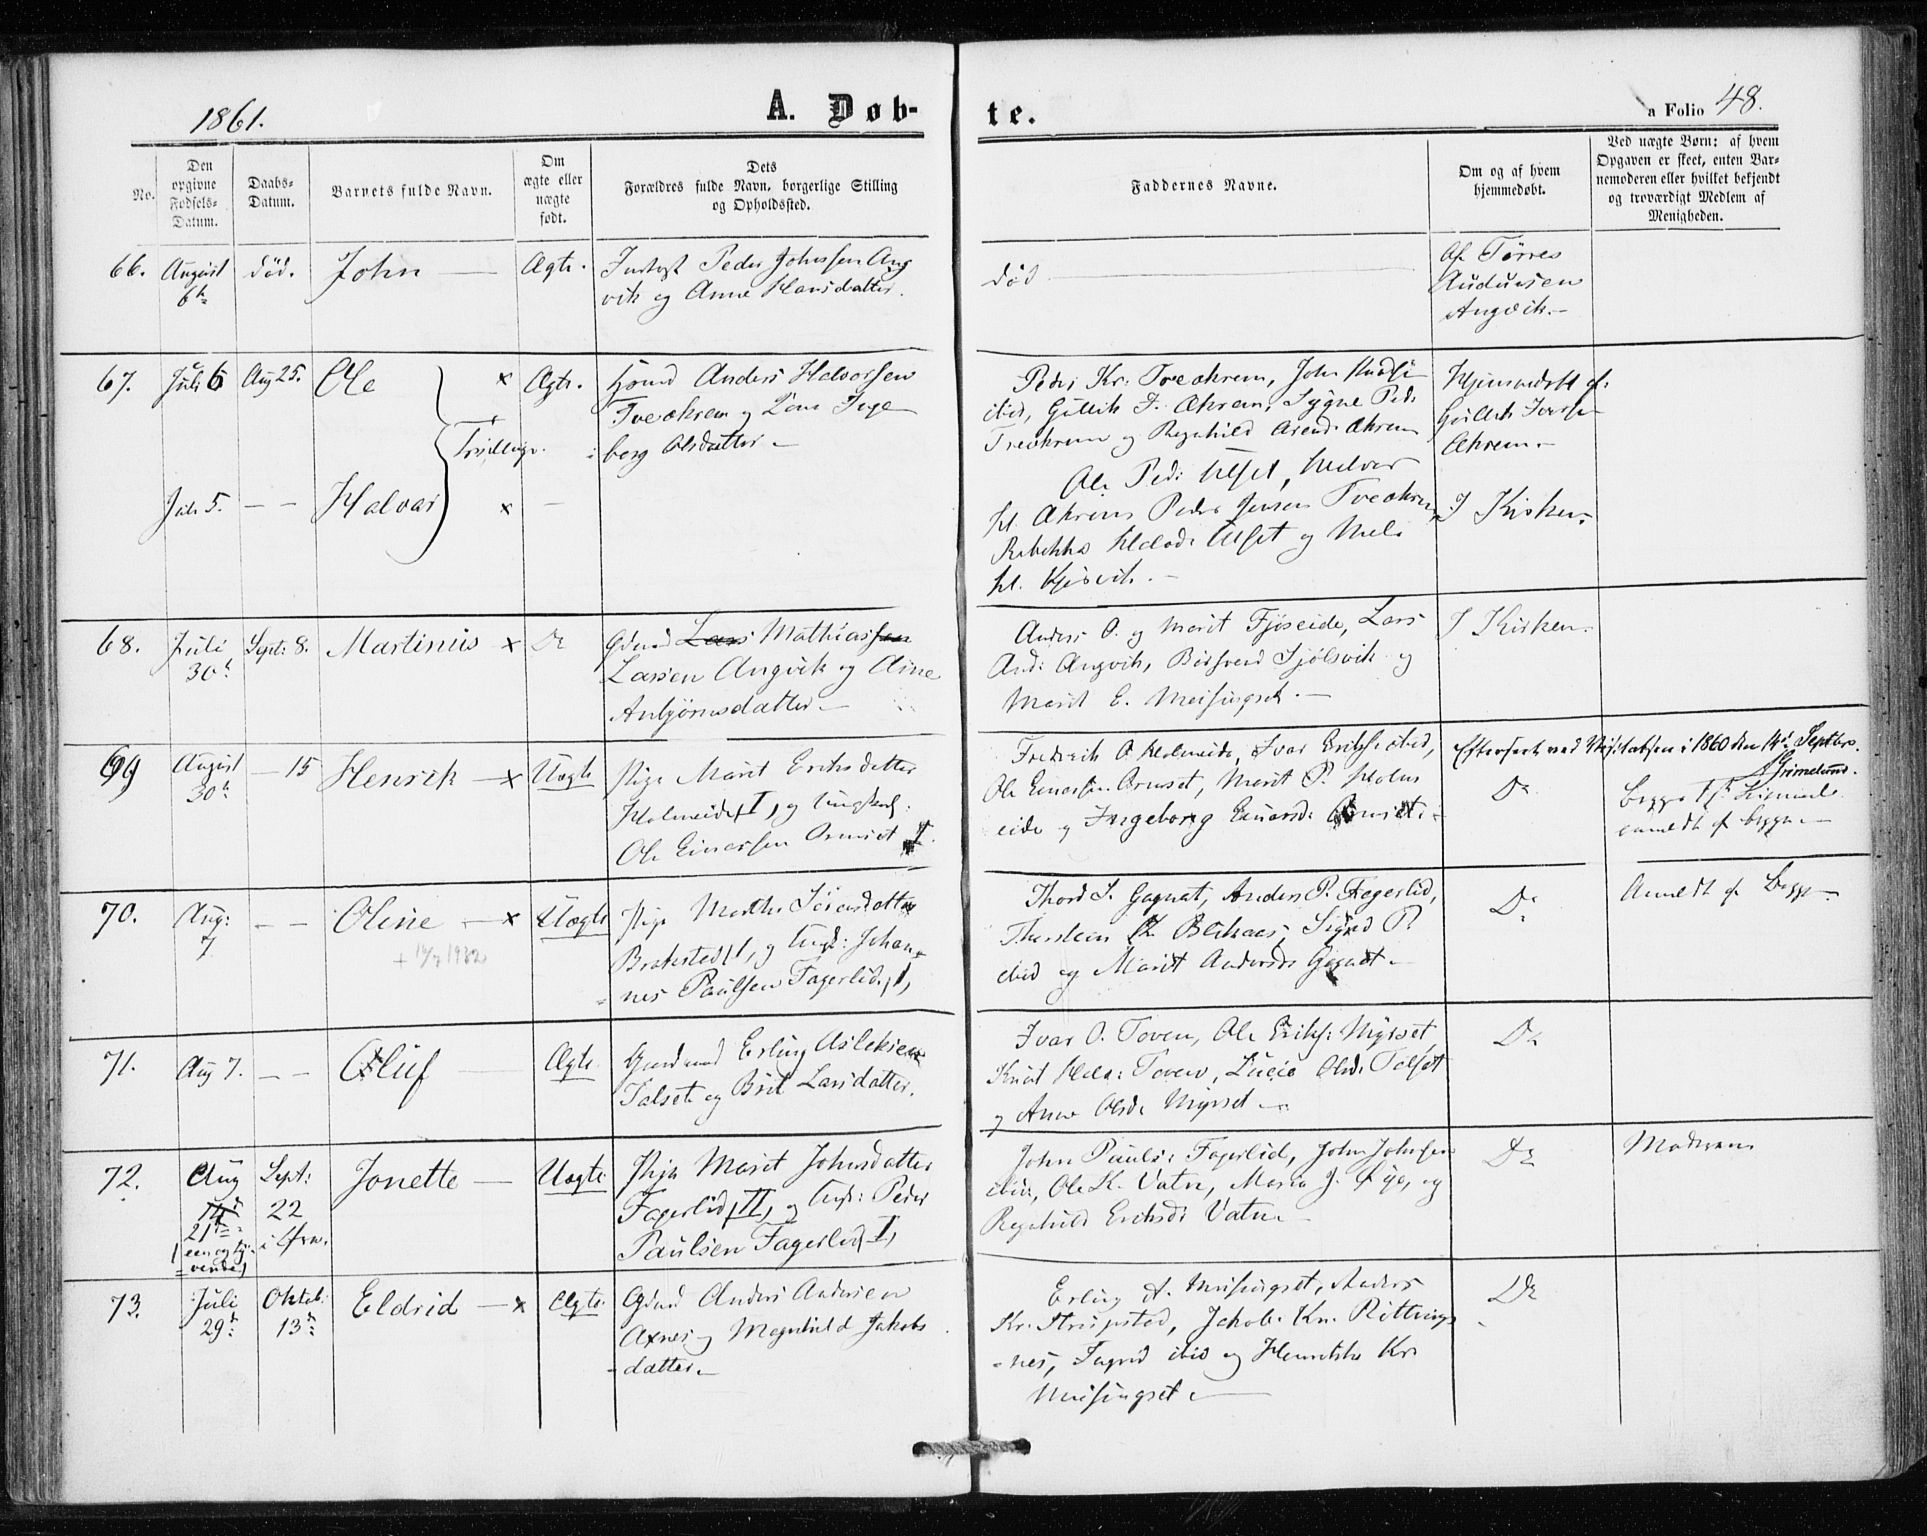 1861.
A. Døb-
te.
a Folio 48.
No.
Den
opgivne
Fødsels-
Datum.
Daabs-
Datum.
Barnets fulde Navn.
Om
ægte eller
uægte
født.
Dets
Forældres fulde Navn, borgerlige Stilling
og Opholdssted.
Faddernes Navne.
Om og af hvem
hjemmedøbt.
Ved uægte Børn: af hvem
Opgaven er skeet, enten Bar-
nemoderen eller hvilket bekjendt
og troværdigt Medlem af
Menigheden.
66. August død. John — Ægte. Peder Johnsen Ang
6te vik og Anne Hansdatter.
død
Af Tørres
Audunsen
Angvik.—
67. Juli 6 Aug 25. Ole × Ægte. Anders Halvorsen
Tveekrem og Inge
Trillinger. berg Olsdatter —
Juli 5. — — Halvar × —
Peder Kr: Tveekrem, John
ibid, Gullik I. Ækrem, Sygne Ped:
Tveekrem og Ragnhild Ækrem
Ole Ped: Ulset, Halvor
Ækrem Peder Jensen Tveekrem,
Rebekka Ulset og
Hjemmedøbt af
Gullik Iversen
Ækrem.—
I Kirken.
68. Juli Sept: 8. Martinus × Do Gdmd Lars Mathiassen
30te Larsen Angvik og Ane
Anbjørnsdatter —
Anders O. og Marit Fjøseide, Lars
And: Angvik, Sjølsvik og
Marit E. Meisingset.—
I Kirken.
69 August — 15 Henrik — × Uægte Pige Marit Eriksdatter
30te Holmeide, I, og Ungkarl:
Ole Einarsen Ormset I.
Frederik O. Holmeide, Ivar Eriks: ibid,
Ole Einarsen Ormset, Marit P. Holms
eide og Ingeborg Einarsd: Ormset.—
Efterseet ved Visitatsen i 1860 den 14de Septbr.
Grimelund.
Do
begge
anmeldt af begge —
70. Aug: — — Oline — × Uægte Pige Marthe Sørensdatter
7 + 1932 Brakstad, I, og Ungk: Johan-
nes Paulsen Fagerlid, I,
Thord S. Gagnat, Anders P. Fagerlid,
Thorsteen Blekaas, Sigrid P.
ibid og Marit Andersd: Gagnat —
Do
Anmeldt af Begge —
71. Aug 7. — — Oluf — Ægte Gaardmand Erling Aslaksen
Talset og Brit Larsdatter.
Ivar O. Toven, Ole Eriks: Myrset
Knut Toven, Lucie Olsd: Talset
og Anne Olsd: Myrset —
Do
72. Aug Sept: Jonette — Uægte Pige Marit Johnsdatter
14de 22 Fagerlid, II, og Ungk: Peder
21de i Øre. Paulsen Fagerlid, I,
(een og ty-
vende)
John Pauls: Fagerlid, John Johnsen
ibid, Ole K. Vatn, Maria J. Øye, og
Ragnhild Eriksd: Vatn —
Do
Moderen
73. Juli Oktob: Eldrid — × Ægte Gdmd Anders Andersen
29de: 13de: Axnes og Magnhild Jakobs
-datter —
Erling A. Meisingset, Anders
Kr. Strupstad, Jakob Kn. Rottings
-nes, Ingrid ibid og Henrikke Kr.
Meisingset —
Do